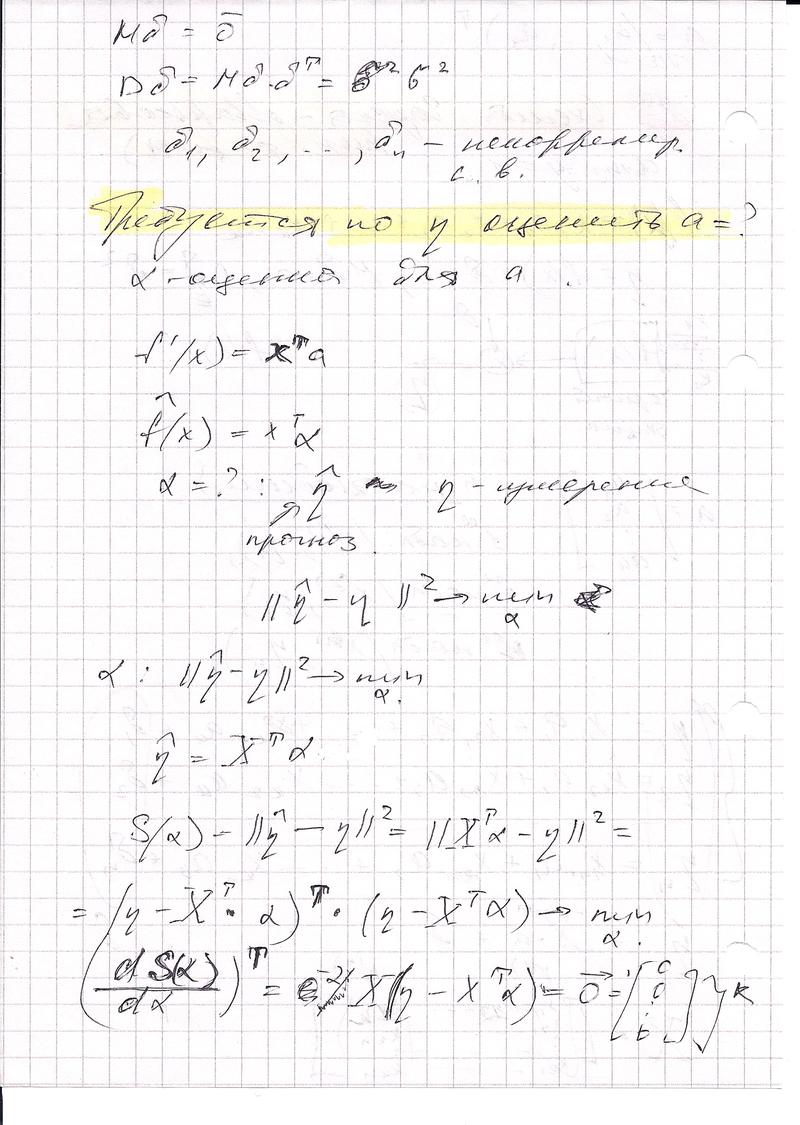 Mδ = 0̄
Dδ = Mδ·δᵀ = σ²
δ₁, δ₂, ..., δₙ – некоррелир.
с. в.
Требуется по η оценить a = ?
α - оценка для a .
f(x) = xᵀa
f̂(x) = xᵀα
α = ? : η̂ ~ η - измерение
прогноз.
||η̂ – η||² → min
α
α : ||η̂ – η||² → min
α.
η̂ = Xᵀα
S(α) = ||η̂ – η||² = ||Xᵀα – η||² =
= (η – Xᵀ· α)ᵀ · (η – Xᵀα) → min
α.
(dS(α)/dα)ᵀ = -2X(η – xᵀα) = 0⃗ = [0 0 ⋮ 0]} k